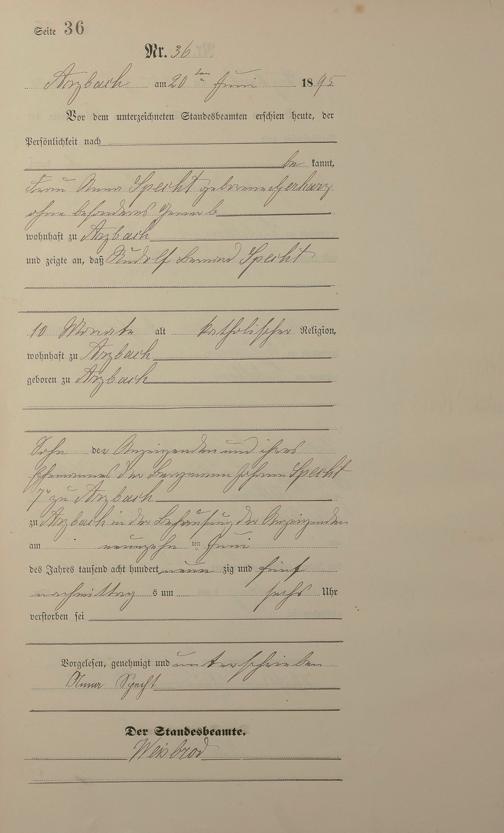 Seite 36
Nr. 36
Arzbach am 20 ten Juni 1895
Vor dem unterzeichneten Standesbeamten erschien heute, der
Persönlichkeit nach
be kannt,
Frau Anna Specht geborene Gerharz
ohne besonderes Gewerb
wohnhaft zu Arzbach
und zeigte an, daß Rudolf Specht
10 Monate alt katholischer Religion,
wohnhaft zu Arzbach
geboren zu Arzbach
Sohn der Anzeigenden und ihres
Ehemannes der Bergmann Johann Specht
zu Arzbach
zu Arzbach in der Behausung der Anzeigenden
am neunzehn ten Juni
des Jahres tausend acht hundert neun zig und fünf
nachmittag s um sechs Uhr
verstorben sei
Vorgelesen, genehmigt und unterschrieben
Anna Specht
Der Standesbeamte.
Weisbrod